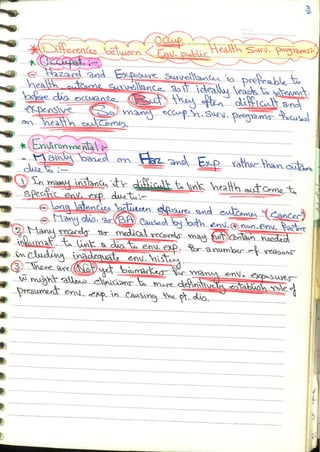 Occup.
* Differences between < Env. public Health Surv. programs *
* Occupat. :-
Hazard and Exposure surveillance is preferable to
health outcome surveillance as it ideally leads to intervent.
before dis occurance. But they often difficult and
expensive So many occup. h. surv. programs focused
on health outcomes
* Environmental :-
- Mainly based on Haz and Exp rather than outcom
due to :-
1 In many instances it's difficult to link health outcome to
specific env. exp due to:-
Long latencies between exposures and outcomes (Cancer)
Many dis. as (BA) caused by both env. & non.env. Factors
2 Many records as medical records may not contain needed
informat. to link a dis to env. exp. for a number of reasons
including inadequate env. history
3 There are Not yet biomarkers for many env. exposures
w might allow clinicians to more definitively establish role of
presument env. exp. in causing the pt. dis.